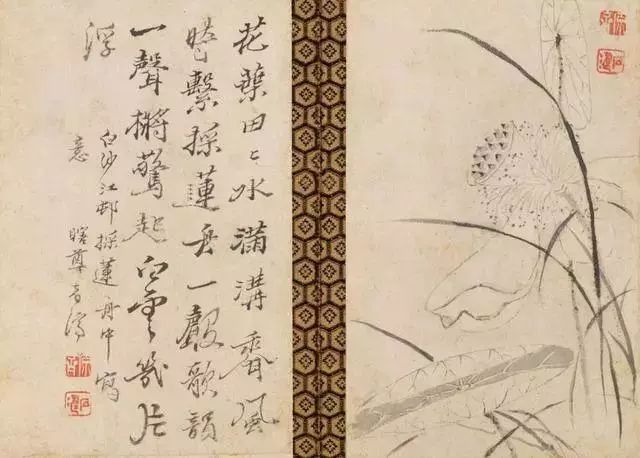 花葉田〻水滿溝香風
繫採蓮舟一聲歌韻
一聲槳驚起白雲幾片
浮
白沙江邨採蓮舟中寫
意
瞎尊者濟